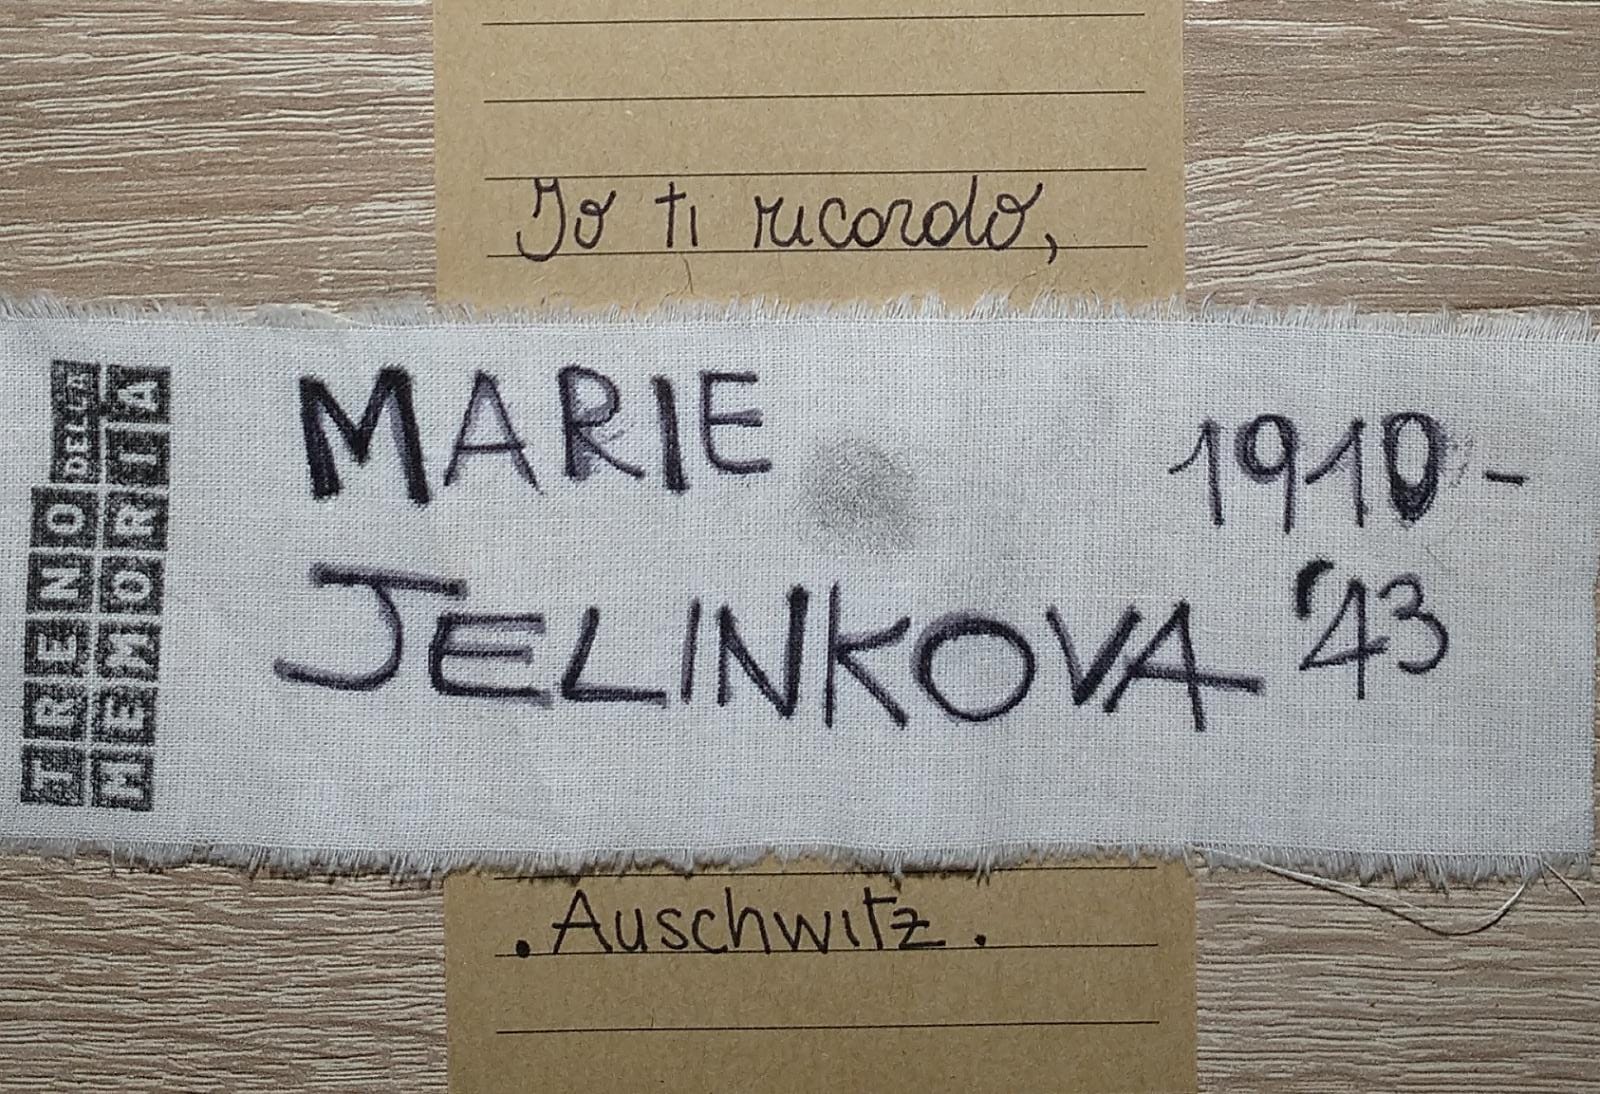 Io ti ricordo,
TRENO DELLA
MEMORIA
MARIE 1910-
JELINKOVA '43
. Auschwitz .